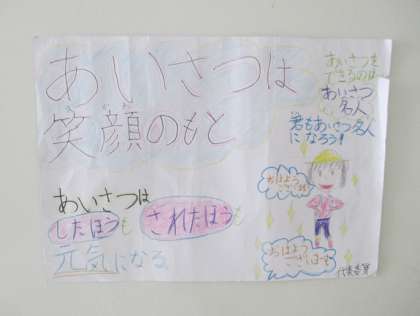 あいさつは
笑顔のもと
あいさつを
できるのは
あいさつ
名人
君もあいさつ名人
になろう!
あいさつは
したほうも
されたほうも
元気になる
おはよう
ございます
おはよう
ございまーす
代表委員